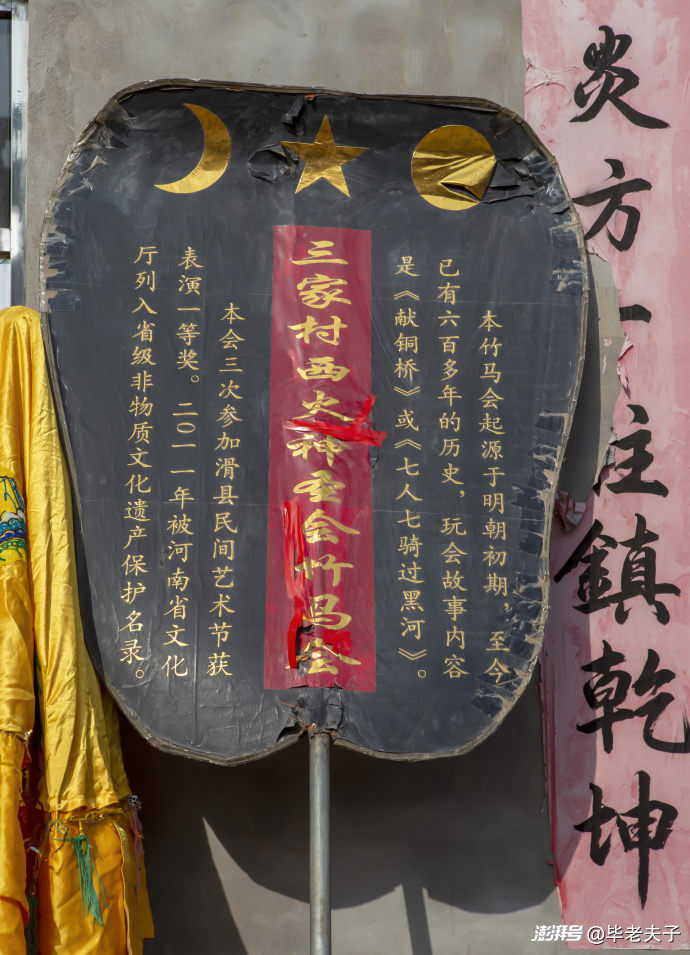 炎方一主鎮乾坤
本竹马会起源于明朝初期，至今
已有六百多年的历史，玩会故事内容
是《献铜桥》或《七人七骑过黑河》。
三家村西火神圣会竹马会
本会三次参加滑县民间艺术节获
表演一等奖。二〇一一年被河南省文化
厅列入省级非物质文化遗产保护名录。
澎湃号@毕老夫子